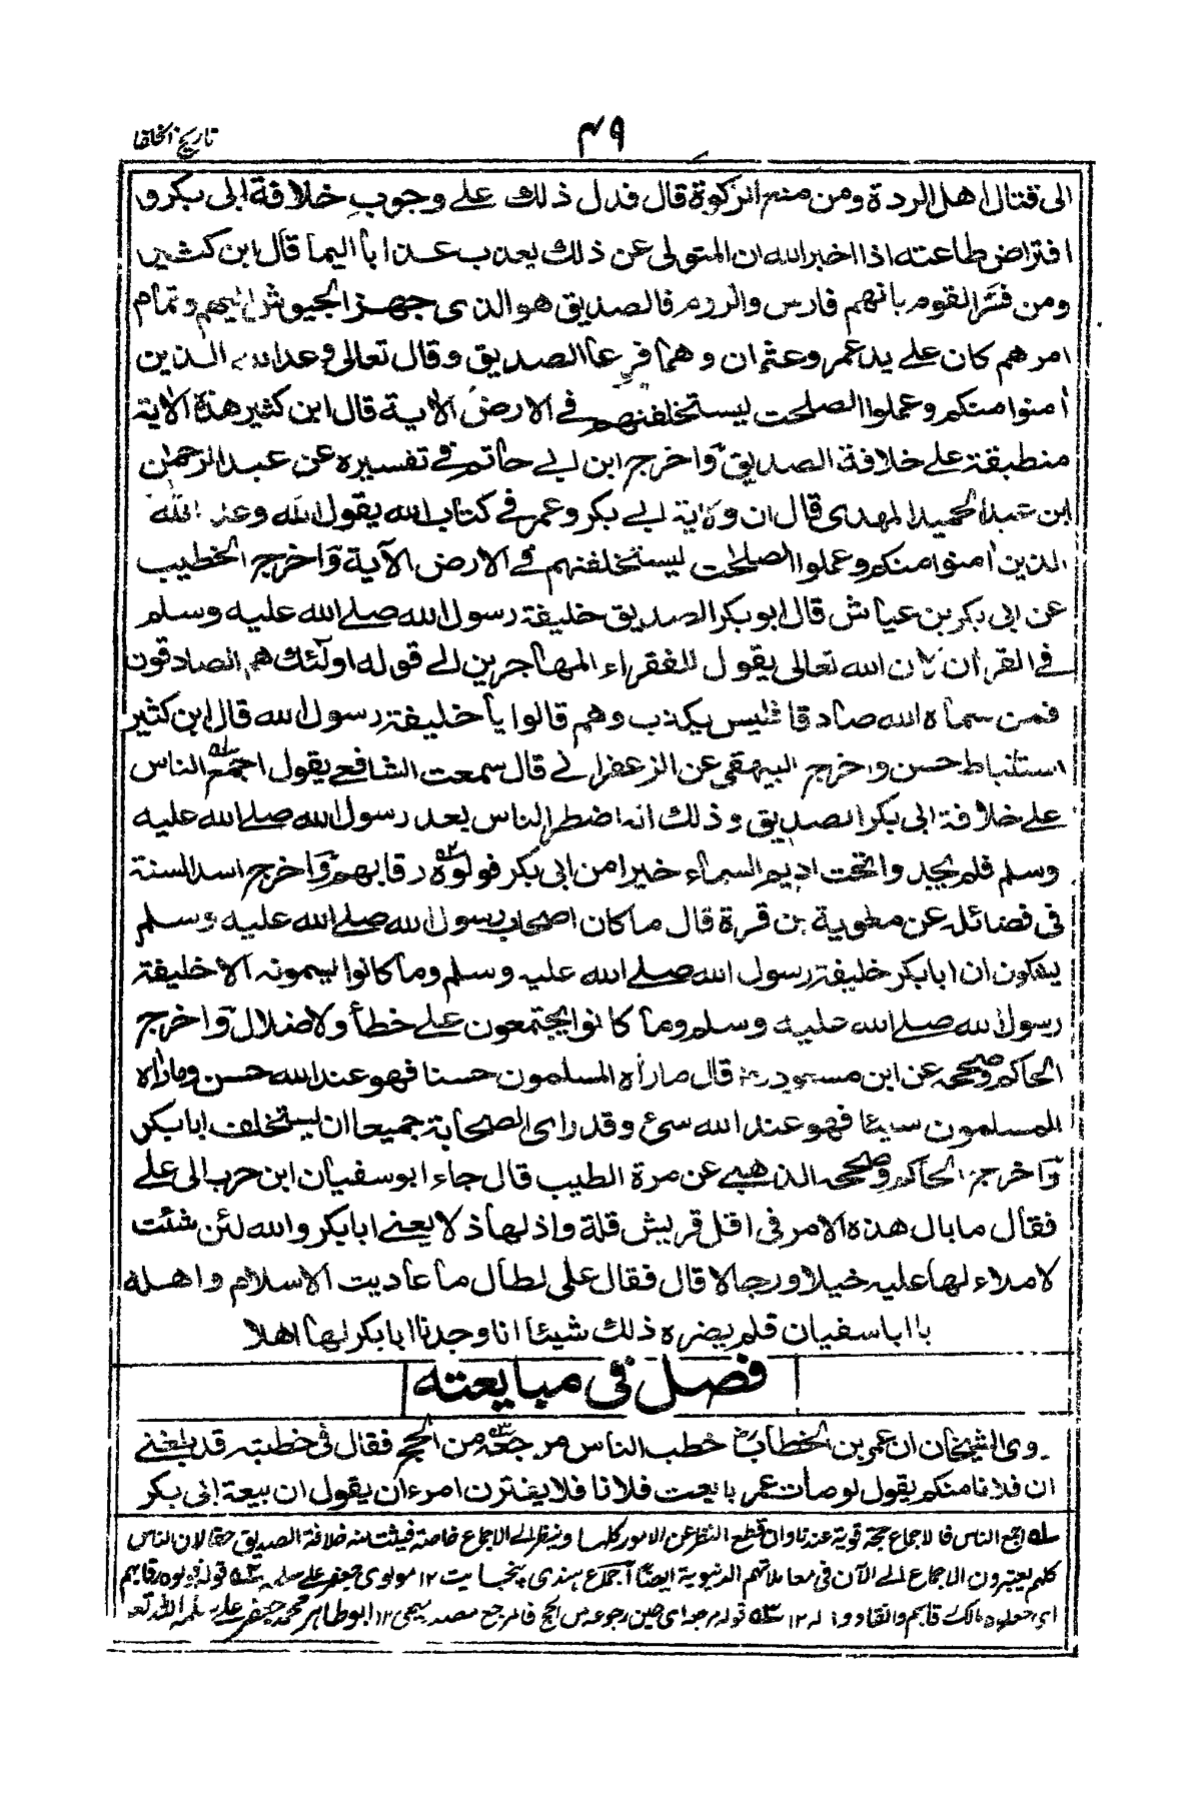 تاريخ الخلفا
٤٩
الى قتال اهل الردة ومن منع الزكوة قال فدل ذلك علے وجوب خلافة ابى بكر و
افتراض طاعته اذا اخبر الله ان المتولى عن ذلك يعذب عذابا اليما قال ابن كثير
ومن فسَّر القوم بانهم فارس والروم فالصديق هو الذى جهز الجيوش اليهم وتمام
امرهم كان علے يد عمر وعثمان وهما فرعا الصديق وقال تعالى وعد الله الذين
اٰمنوا منكم وعملوا الصلحت ليستخلفنهم فے الارض الاٰية قال ابن كثير هذه الاٰية
منطبقة علے خلافة الصديق واخرج ابن ابے حاتم فے تفسيره عن عبد الرحمٰن
ابن عبد الحميد المهدى قال ان ولاية ابے بكر وعمر فے كتاب الله يقول الله وعد الله
الذين اٰمنوا منكم وعملوا الصلحت ليستخلفنهم فے الارض الآية واخرج الخطيب
عن ابى بكر بن عياش قال ابو بكر الصديق خليفة رسول الله صلے الله عليه وسلم
فے القراٰن لان الله تعالى يقول للفقراء المهاجرين الے قوله اولٓئك هم الصادقون
فمن سماه الله صادقا فليس يكذب وهم قالوا يا خليفة رسول الله قال ابن كثير
استنباط حسن واخرج البيهقى عن الزعفرانے قال سمعت الشافعے يقول اجمع الناس
علے خلافة ابى بكر الصديق وذلك انه اضطر الناس بعد رسول الله صلے الله عليه
وسلم فلم يجدوا تحت اديم السماء خيرا من ابى بكر فولوه رقابهم واخرج اسد السنة
فى فضائله عن معٰوية بن قرة قال ما كان اصحاب رسول الله صلے الله عليه وسلم
يشكون ان ابا بكر خليفة رسول الله صلے الله عليه وسلم وما كانوا يسمونه الا خليفة
رسول الله صلے الله عليه وسلم وما كانوا يجتمعون علے خطأ ولا ضلال واخرج
الحاكم وصححه عن ابن مسعود رضـ قال ما راٰه المسلمون حسنا فهو عند الله حسن وما راٰه
المسلمون سيئا فهو عند الله سئ وقد راى الصحابة جميعا ان يستخلف ابا بكر
واخرج الحاكم وصححه الذهبے عن مرة الطيب قال جاء ابو سفيان ابن حرب الى علے
فقال ما بال هذه الامر فى اقل قريش قلة واذلها ذلا يعنے ابا بكر والله لئن شئت
لاملاءنها عليه خيلا ورجالا قال فقال على لطال ما عاديت الاسلام واهله
يا ابا سفيان فلم يضره ذلك شيئا انا وجدنا ابا بكر لها اهلا
فصل فى مبايعته
روى الشيخان ان عمر بن الخطاب رضـ خطب الناس مرجعه من الحج فقال فى خطبته قد بلغنے
ان فلانا منكم يقول لو مات عمر بايعت فلانا فلا يغترن امرء ان يقول ان بيعة ابى بكر
سله اجمع الناس فالاجماع حجة قوية عندنا وان قطع النظر عن الامور كلها وينظر الے الاجماع خاصة فيثبت منه خلافة الصديق حقا لان الناس
كلهم يعتبرون الاجماع الے الآن فى معاملاتهم الدنيوية ايضا اجماع هندى پنچايت ١٢ مولوى جعفر علے سلمه ٥٢ قوله فولوه رقابهم
اى جعلوه مالك رقابهم وانقادوا له ١٢ ٥٣ قوله مرجعه اى حين رجوعه من الحج فالمرجع مصدر ميمى ١٢ ابو طاهر محمد جعفر علے سلمه الله تعـ